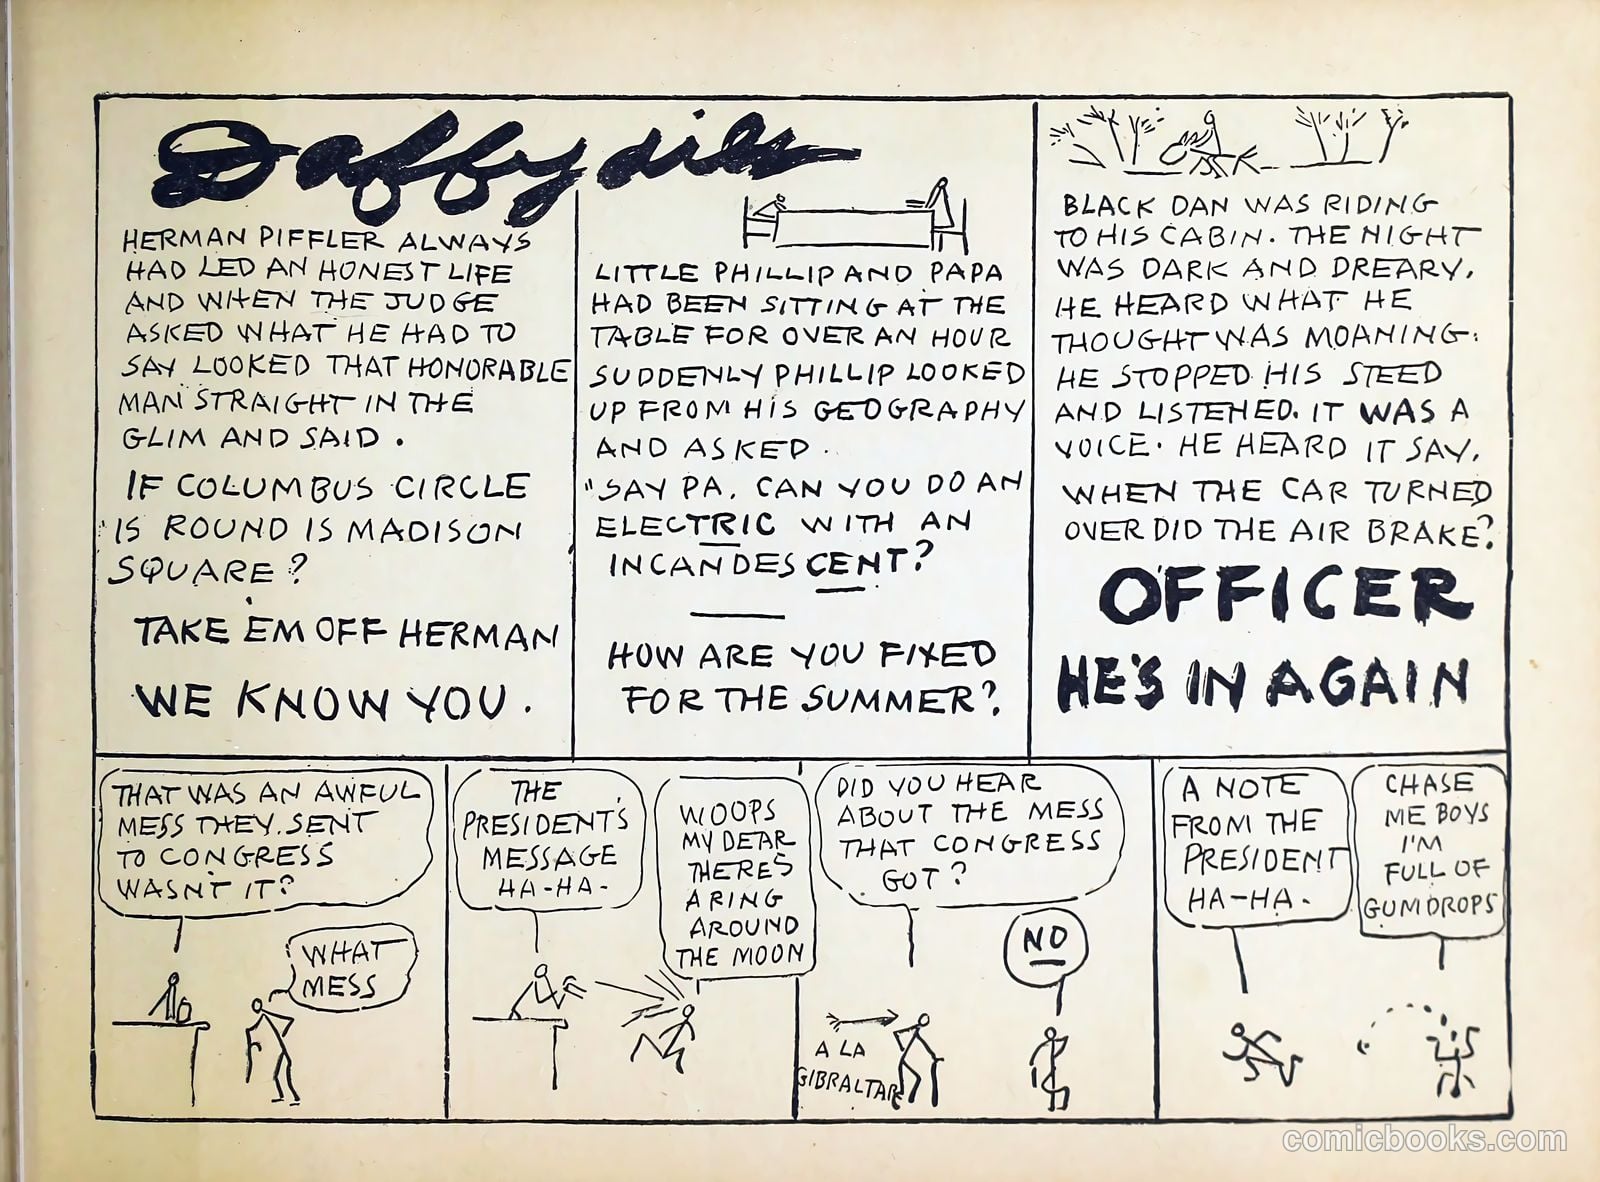 Daffydils
HERMAN PIFFLER ALWAYS
HAD LED AN HONEST LIFE
AND WHEN THE JUDGE
ASKED WHAT HE HAD TO
SAY LOOKED THAT HONORABLE
MAN STRAIGHT IN THE
GLIM AND SAID.
IF COLUMBUS CIRCLE
IS ROUND IS MADISON
SQUARE?
TAKE EM OFF HERMAN
WE KNOW YOU.
LITTLE PHILLIP AND PAPA
HAD BEEN SITTING AT THE
TABLE FOR OVER AN HOUR
SUDDENLY PHILLIP LOOKED
UP FROM HIS GEOGRAPHY
AND ASKED.
"SAY PA, CAN YOU DO AN
ELECTRIC WITH AN
INCANDESCENT?
HOW ARE YOU FIXED
FOR THE SUMMER?
BLACK DAN WAS RIDING
TO HIS CABIN. THE NIGHT
WAS DARK AND DREARY.
HE HEARD WHAT HE
THOUGHT WAS MOANING.
HE STOPPED HIS STEED
AND LISTENED. IT WAS A
VOICE. HE HEARD IT SAY,
WHEN THE CAR TURNED
OVER DID THE AIR BRAKE?
OFFICER
HE'S IN AGAIN
THAT WAS AN AWFUL
MESS THEY SENT
TO CONGRESS
WASN'T IT?
WHAT
MESS
THE
PRESIDENT'S
MESSAGE
HA-HA-
WOOPS
MY DEAR
THERE'S
A RING
AROUND
THE MOON
DID YOU HEAR
ABOUT THE MESS
THAT CONGRESS
GOT?
NO
A LA
GIBRALTAR
A NOTE
FROM THE
PRESIDENT
HA-HA-
CHASE
ME BOYS
I'M
FULL OF
GUMDROPS
comicbooks.com